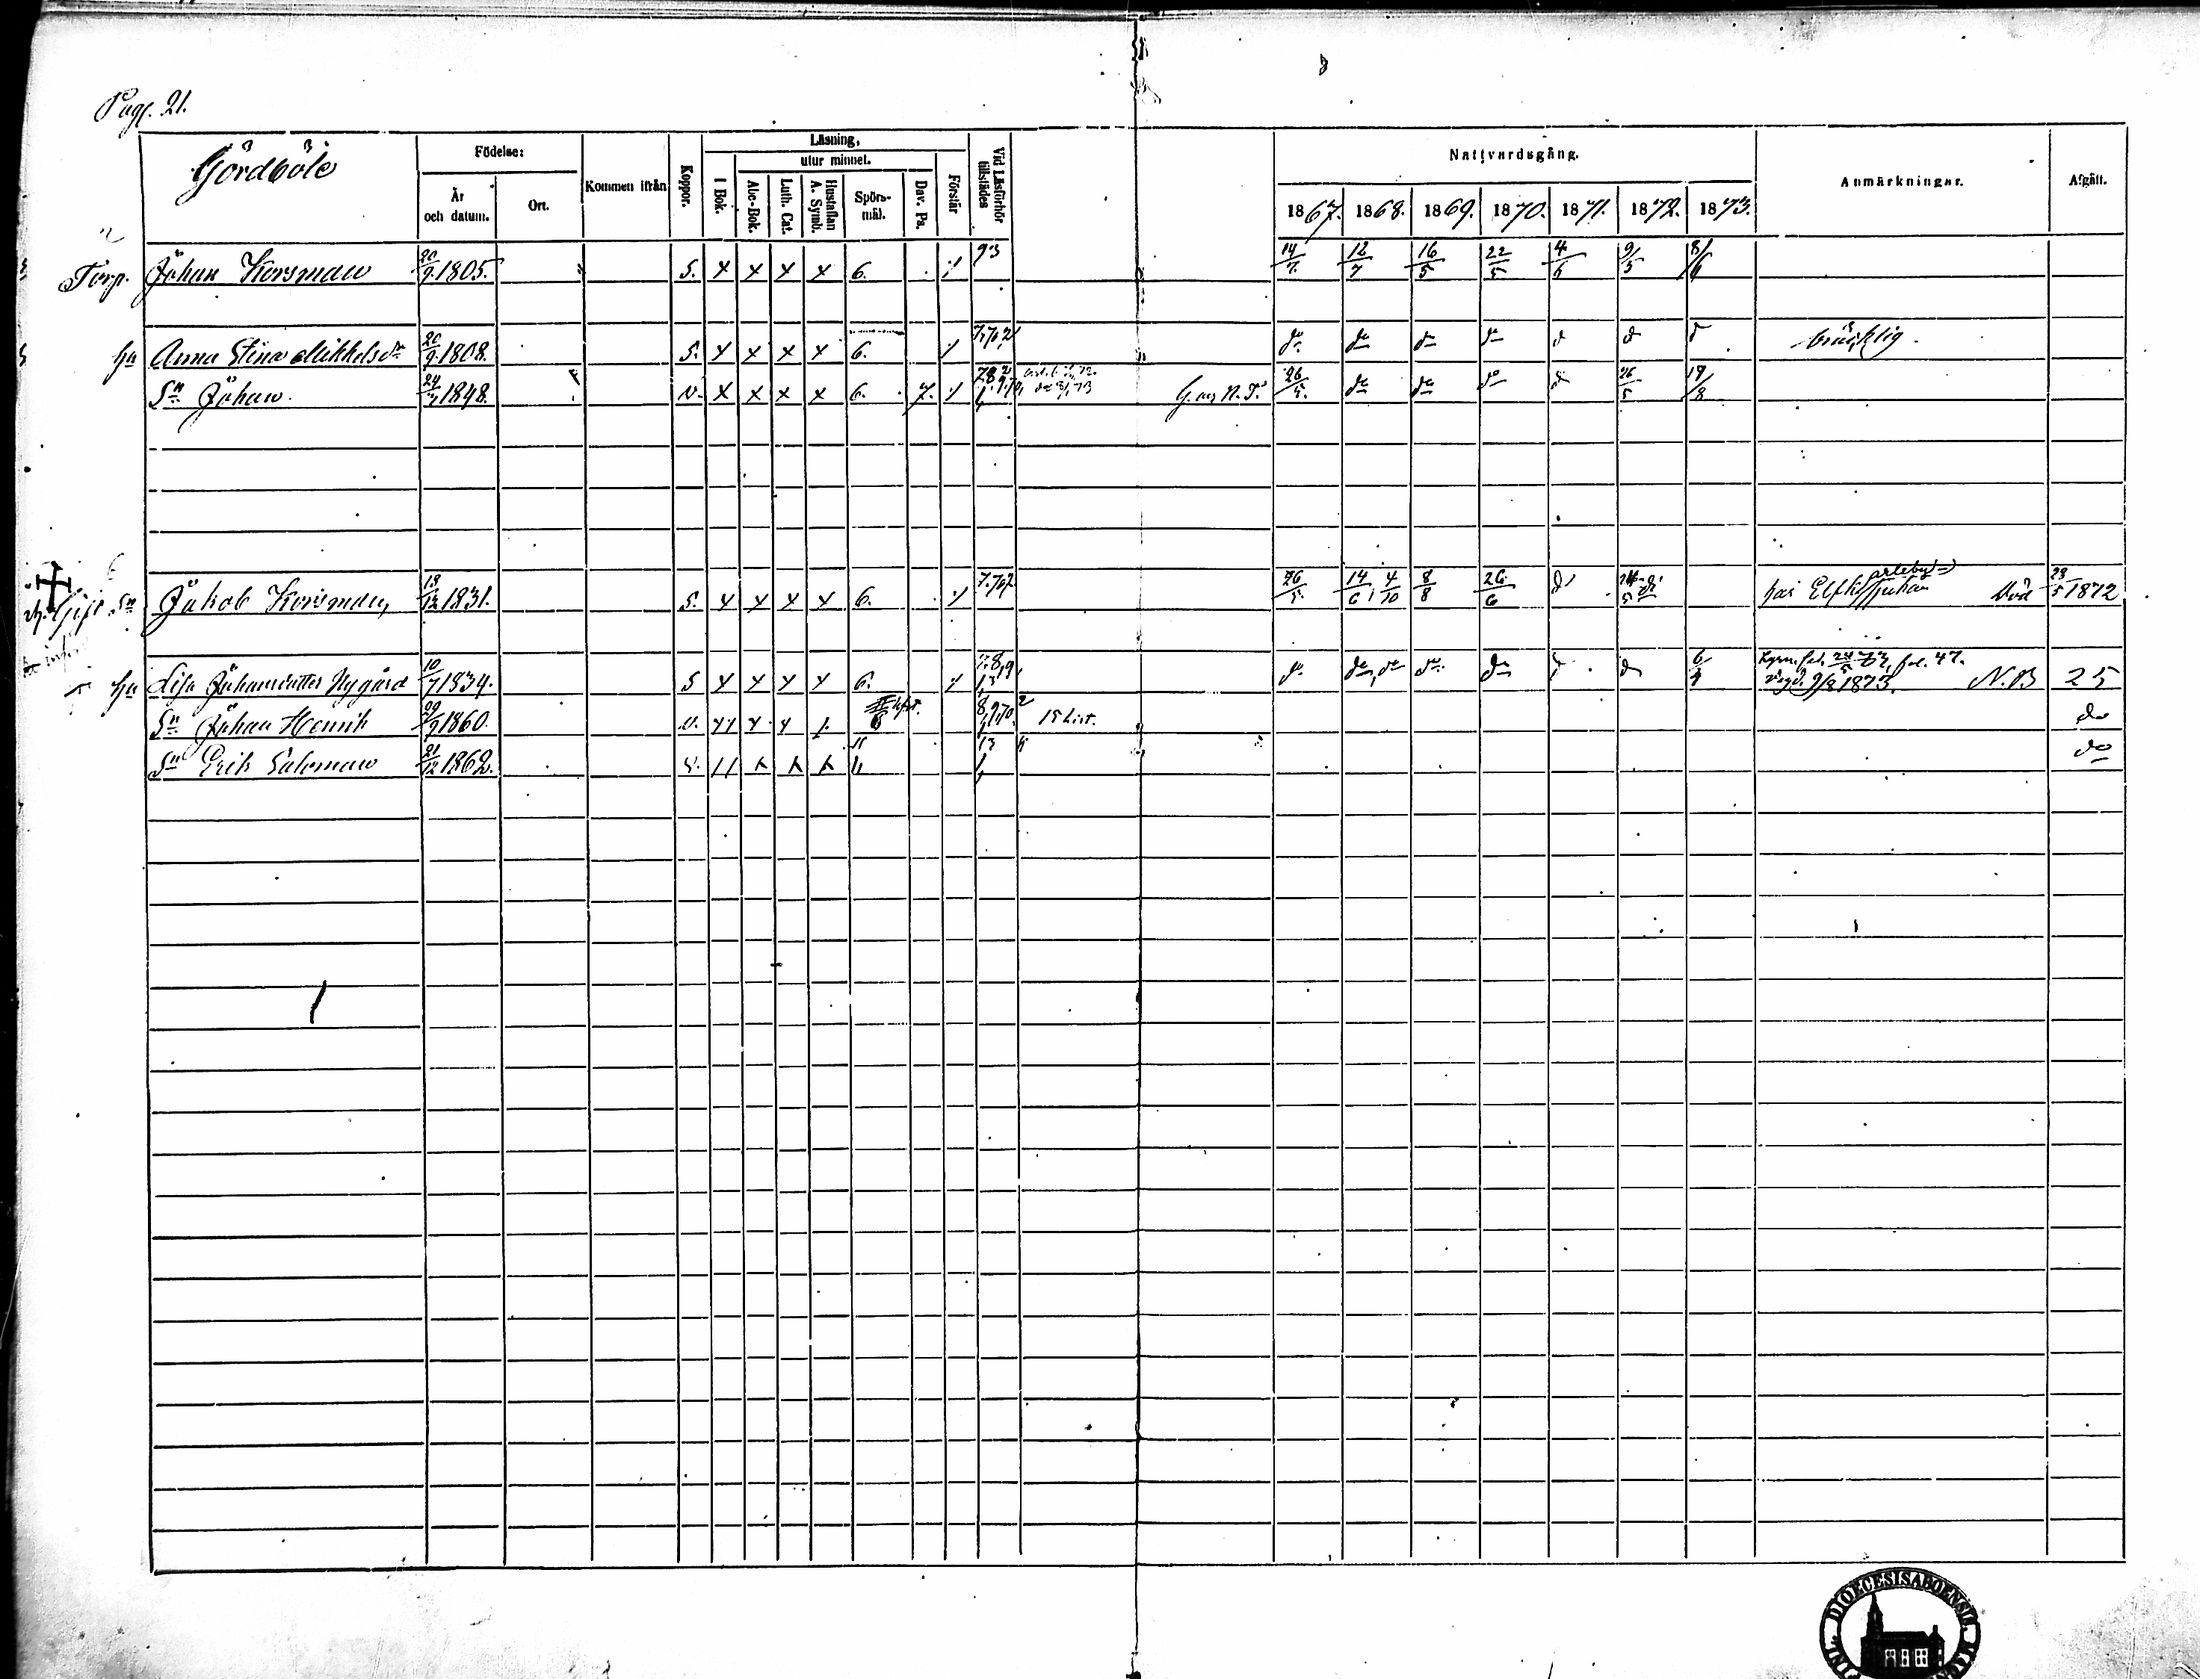 Pag. 21.
Gördböle
Födelse:
År och datum.
Ort.
Kommen ifrån
Koppor.
Läsning,
I Bok.
utur minnet.
Abc-Bok.
Luth. Cat.
Hustaflan A. Symb.
Spörs-mål.
Dav. Ps.
Förstår
Vid Läsförhör tillstädes
Nattvardsgång.
1867. 1868. 1869. 1870. 1871. 1872. 1873.
Anmärkningar.
Afgått.
Torp. Johan Korsman 20/9 1805. S. x x x x 6. 93 14/7 12/7 16/5 22/5 4/6 9/5 8/6
hu Anna Stina Mikkelsdr 20/9 1808. S. x x x x 6. 7,70,2 do do do do d d d bräcklig.
Sn Johan. 24/7 1848. v. x x x x 6. 7. G. ny N. T. 26/5. do do do d 26/5 17/8
Gift Sn Jakob Korsman, 13/12 1831. S. x x x x 6. 7.70,2 26/5. 14/6, 4/10 8/8 26/6 d Död 23/5 1872
hu Lisa Johansdotter Nygård 10/7 1834. S x x x x 6. 7.8,9, 13 do do, do do do d d 6/4 fol. 47.
vigd 9/8 1873. N.B 25
Sn Johan Henrik 29/9 1860. v. 8,9,70, 2 15 List. do
Sn Erik Salomon 21/12 1862. do
DIOECESIS ABOENSIS